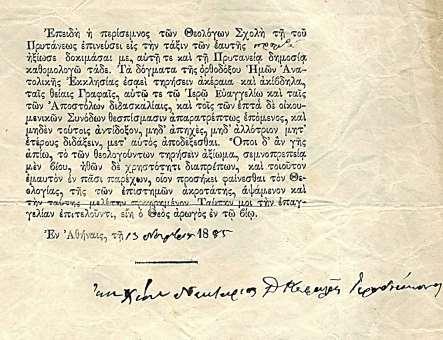 Ἐπειδὴ ἡ περίσεμνος τῶν Θεολόγων Σχολὴ τῇ τοῦ
Πρυτάνεως ἐπινεύσει εἰς τὴν τάξιν τῶν ἑαυτῆς
ἠξίωσε δοκιμάσαι με, αὐτῇ τε καὶ τῇ Πρυτανείᾳ δημοσίᾳ
καθομολογῶ τάδε. Τὰ δόγματα τῆς ὀρθοδόξου Ἡμῶν Ἀνα-
τολικῆς Ἐκκλησίας ἐσαεὶ τηρήσειν ἀκέραια καὶ ἀκίβδηλα,
ταῖς θείαις Γραφαῖς, αὐτῷ τε τῷ Ἱερῷ Εὐαγγελίῳ καὶ ταῖς
τῶν Ἀποστόλων διδασκαλίαις, καὶ τοῖς τῶν ἑπτὰ δὲ οἰκου-
μενικῶν Συνόδων θεσπίσμασιν ἀπαρατρέπτως ἑπόμενος, καὶ
μηδὲν τούτοις ἀντίδοξον, μηδ' ἀπηχές, μηδ' ἀλλότριον μήτ'
ἑτέρους διδάξειν, μετ' αὐτὸς ἀποδέξεσθαι. Ὅποι δ' ἂν γῆς
ἀπίω, τὸ τῶν θεολογούντων τηρήσειν ἀξίωμα, σεμνοπρεπείᾳ
μὲν βίου, ἠθῶν δὲ χρηστότητι διαπρέπων, καὶ τοιοῦτον
ἐμαυτὸν ἐν πᾶσι παρέχων, οἷον προσήκει φαίνεσθαι τὸν Θεο-
λογίας, τῆς τῶν ἐπιστημῶν ἀκροτάτης, ἁψάμενον καὶ
τὴν ταύτης μελέτην προῃρημένον. Ταύτην μοι τὴν ἐπαγ-
γελίαν ἐπιτελοῦντι, εἴη ὁ Θεὸς ἀρωγὸς ἐν τῷ βίῳ.
Ἐν Ἀθήναις, τῇ 13 1885
Νεκτάριος Κεφαλᾶς Ἱεροδιάκονος